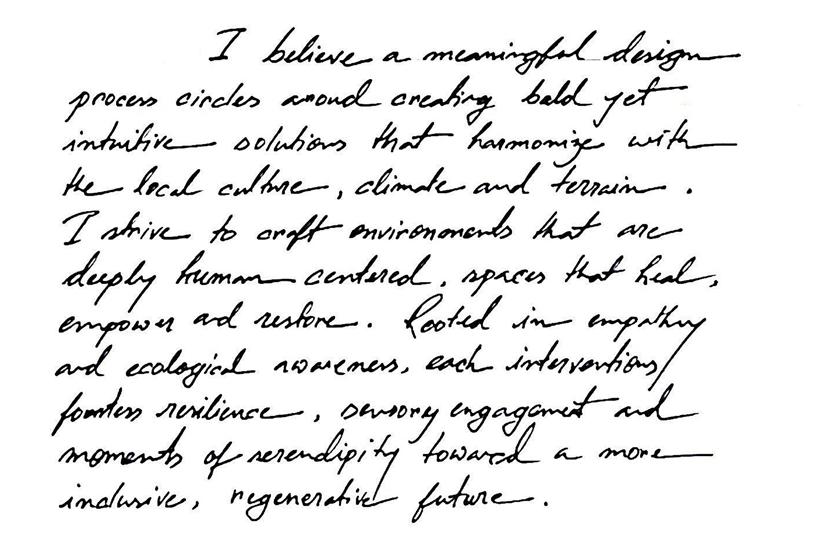 I believe a meaningful design
process circles around creating bold yet
intuitive solutions that harmonize with
the local culture, climate and terrain.
I strive to craft environments that are
deeply human centered, spaces that heal,
empower and restore. Rooted in empathy
and ecological awareness, each interventions
resilience, sensory engagement and
moments of serendipity toward a more
inclusive, regenerative future.